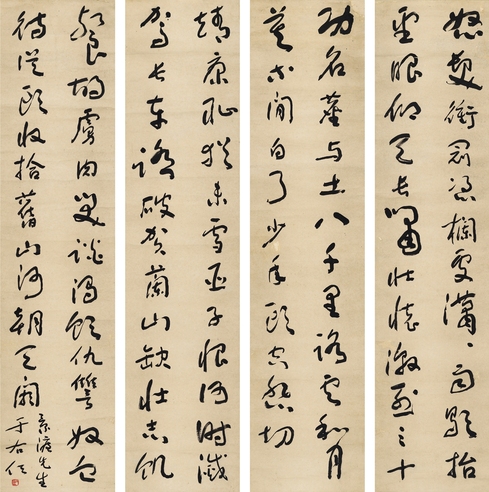 怒髮衝冠憑欄處瀟〻雨歇抬
望眼仰天長嘯壯懷激烈三十
功名塵與土八千里路雲和月
莫等閒白了少年頭空悲切
靖康恥猶未雪臣子恨何時滅
駕長車踏破賀蘭山缺壯志飢
餐胡虜肉笑談渴飲仇讐奴血
待從頭收拾舊山河朝天闕
先生
于右任